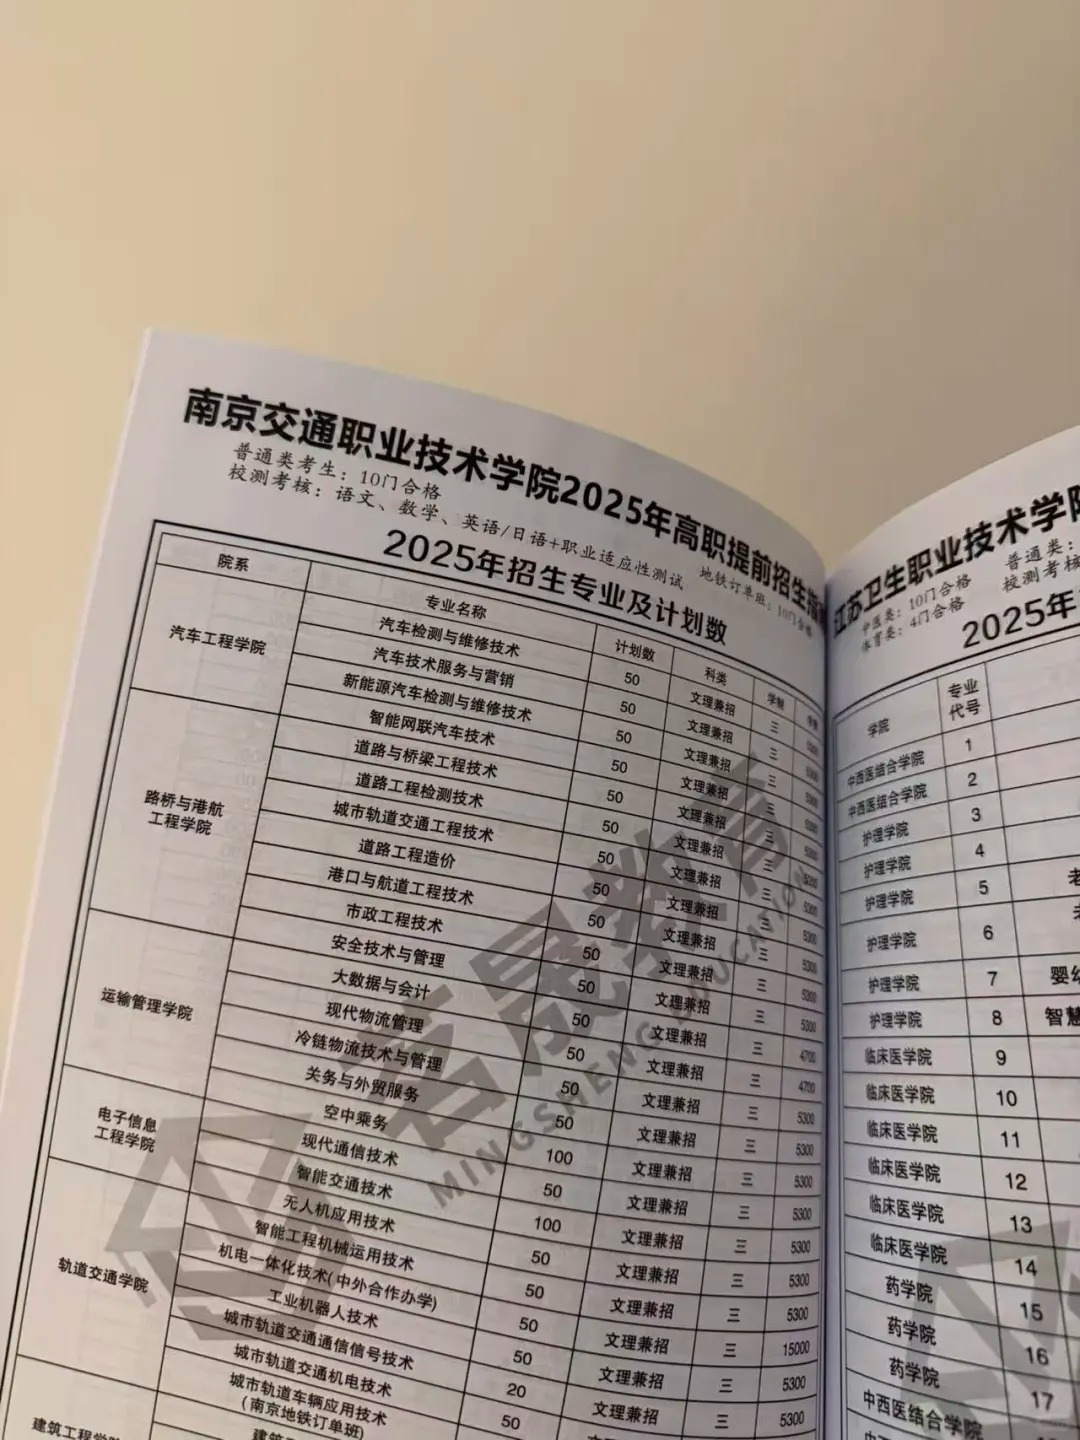 南京交通职业技术学院2025年高职提前招生指
普通类考生：10门合格
校测考核：语文、数学、英语/日语+职业适应性测试 地铁订单班：10门合格
2025年招生专业及计划数
院系 专业名称 计划数 科类 学制
汽车工程学院
汽车检测与维修技术 50 文理兼招 三 5300
汽车技术服务与营销 50 文理兼招 三 5300
新能源汽车检测与维修技术 50 文理兼招 三 5300
智能网联汽车技术 50 文理兼招 三 5300
路桥与港航
工程学院
道路与桥梁工程技术 50 文理兼招 三 5300
道路工程检测技术 50 文理兼招 三 5300
城市轨道交通工程技术 50 文理兼招 三 5300
道路工程造价 50 文理兼招 三 5300
港口与航道工程技术 50 文理兼招 三 5300
市政工程技术 50 文理兼招 三 5300
运输管理学院
安全技术与管理 50 文理兼招 三
大数据与会计 50 文理兼招 三 4700
现代物流管理 50 文理兼招 三 4700
冷链物流技术与管理 50 文理兼招 三
关务与外贸服务 50 文理兼招 三
空中乘务 100 文理兼招 三
电子信息
工程学院
现代通信技术 50 文理兼招 三 5300
智能交通技术 100 文理兼招 三 5300
无人机应用技术 50 文理兼招 三 5300
轨道交通学院
智能工程机械运用技术 50 文理兼招 三 5300
机电一体化技术(中外合作办学) 50 文理兼招 三 15000
工业机器人技术 50 文理兼招 三 5300
城市轨道交通通信信号技术 20
城市轨道交通机电技术 50
城市轨道车辆应用技术
(南京地铁订单班)
建筑工程学院
茗晟教育
MINGSHENG EDUCATION
江苏卫生职业技术学院
普通类：
中医类：10门合格 校测考核
体育类：4门合格
2025年
学院 专业
代号
中西医结合学院 1
中西医结合学院 2
护理学院 3
护理学院 4
护理学院 5
护理学院 6
护理学院 7 婴幼
护理学院 8 智慧
临床医学院 9
临床医学院 10
临床医学院 11
临床医学院 12
临床医学院 13
临床医学院 14
药学院 15
药学院 16
药学院 17
中西医结合学院